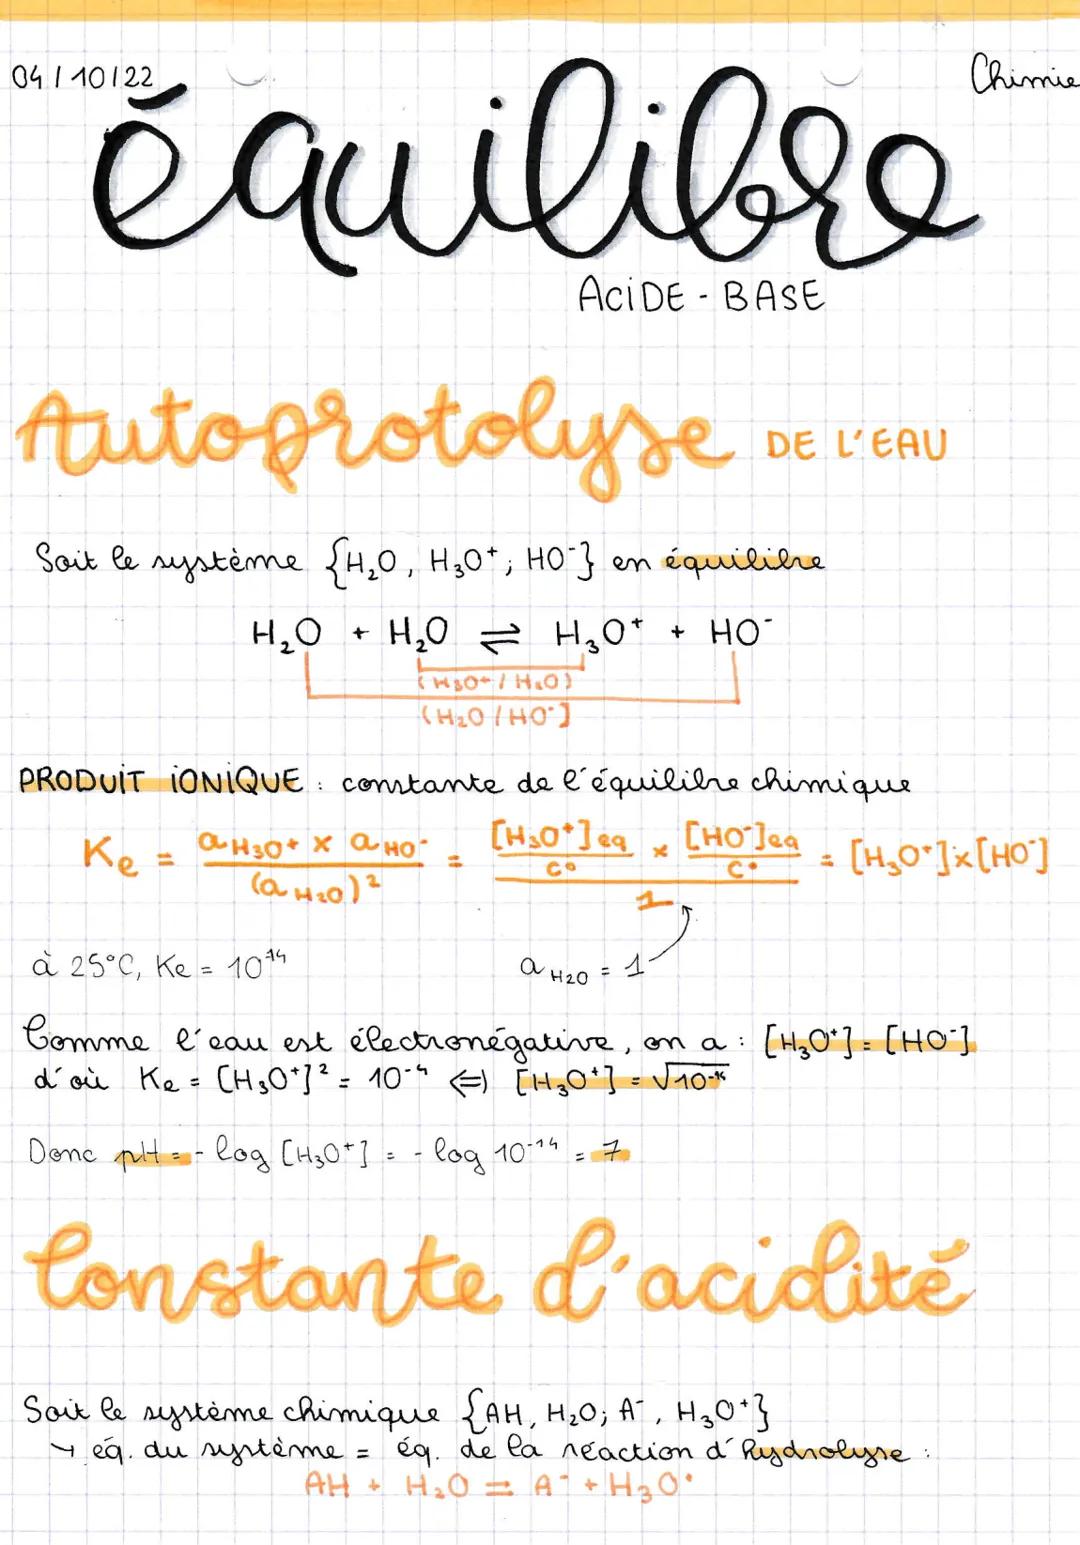 04/10/22
Chimie
équilibre
ACiDE - BASE
Autoprotolyse DE L'EAU
Soit le système {H₂O, H₃O⁺; HO⁻} en équilibre
H₂O + H₂O ⇌ H₃O⁺ + HO⁻
(H₃O⁺/H₂O)
(H₂O/HO⁻)
PRODUiT iONiQUE : constante de l'équilibre chimique
Ke = a H₃O⁺ × a HO⁻ / (a H₂O)² = [H₃O⁺]eq / C° × [HO⁻]eq / C° / 1 = [H₃O⁺]×[HO⁻]
à 25°C, Ke = 10¹⁴
a H₂O = 1
Comme l'eau est électronégative, on a : [H₃O⁺] = [HO⁻]
d'où Ke = [H₃O⁺]² = 10⁻⁴ ⇔ [H₃O⁺] = √10⁻¹⁴
Donc pH = - log [H₃O⁺] = - log 10⁻¹⁴ = 7
Constante d'acidité
Soit le système chimique {AH, H₂O; A⁻, H₃O⁺}
→ éq. du système = éq. de la réaction d'hydrolyse :
AH + H₂O = A⁻ + H₃O⁺